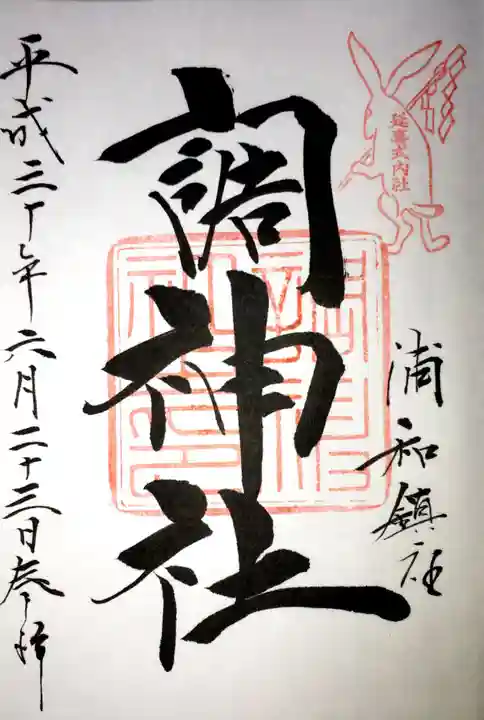 延喜式内社
浦和鎮社
調神社
平成三十年六月二十三日参拝